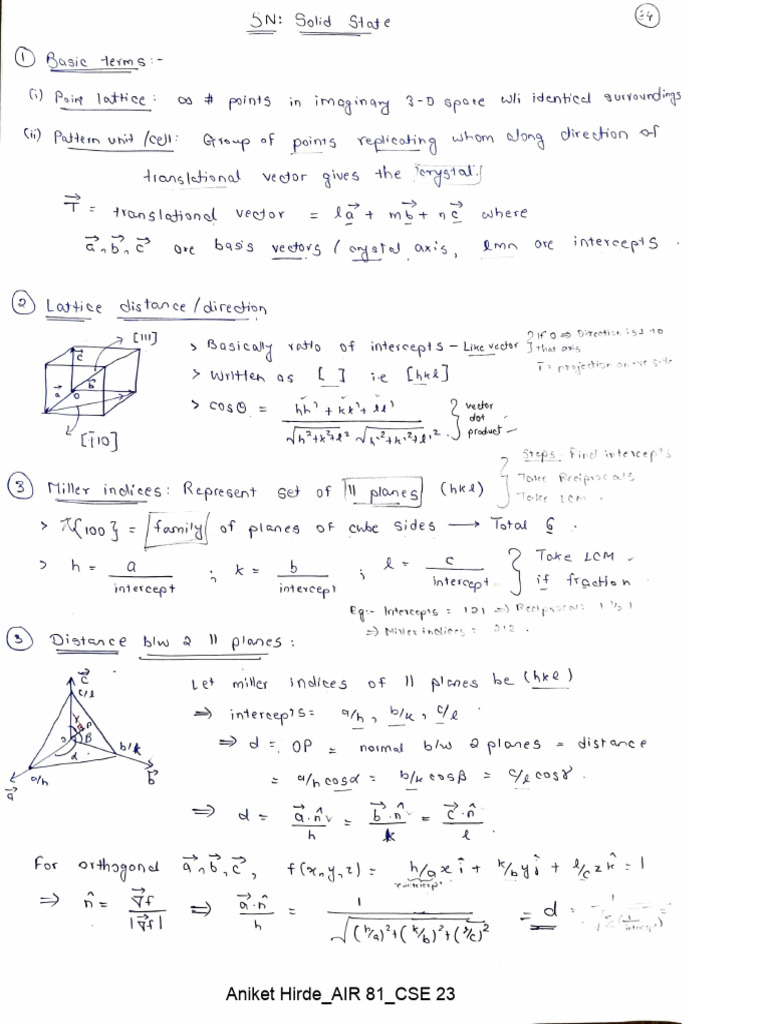 SN: Solid State
34
① Basic terms:-
(i) Point lattice: ∞ # points in imaginary 3-D space w/i identical surroundings
(ii) Pattern unit/cell: Group of points replicating whom along direction of
translational vector gives the crystal.
T⃗ = translational vector = la⃗ + mb⃗ + nc⃗ where
a⃗, b⃗, c⃗ are basis vectors / crystal axis, lmn are intercepts.
② Lattice distance/direction
[111]
c⃗
a⃗
b⃗
O
[1̄10]
> Basically ratio of intercepts - Like vector
If 0 ⇒ Direction is ⊥ to
that axis
1̄ = projection on -ve side
> Written as [ ] i.e [hkl]
> cosθ = hh' + kk' + ll' / √h²+k²+l² √h'²+k'²+l'²
vector
dot
product
③ Miller indices: Represent set of || planes (hkl)
Steps Find intercepts
Take Reciprocals
Take LCM
> {100} = family of planes of cube sides → Total 6.
> h = a / intercept ; k = b / intercept ; l = c / intercept
Take LCM
if fraction
Eg:- Intercepts = 121 ⇒ Reciprocal: 1 ½ 1
⇒ Miller indices = 212.
③ Distance b/w 2 || planes:
c⃗
c/l
γ
P
O
β
α
b/k
b⃗
a/h
a⃗
Let miller indices of || planes be (hkl)
⇒ intercepts = a/h, b/k, c/l
⇒ d = OP = normal b/w 2 planes = distance
= a/h cosα = b/k cosβ = c/l cosγ.
⇒ d = a⃗.n̂ / h = b⃗.n̂ / k = c⃗.n̂ / l.
For orthogonal a⃗, b⃗, c⃗, f(x,y,z) = h/a x î + k/b y ĵ + l/c z k̂ = 1
⇒ n̂ = ∇⃗f / |∇⃗f| ⇒ a⃗.n̂ / h = 1 / √(h/a)²+(k/b)²+(l/c)² = d
Aniket Hirde_AIR 81_CSE 23